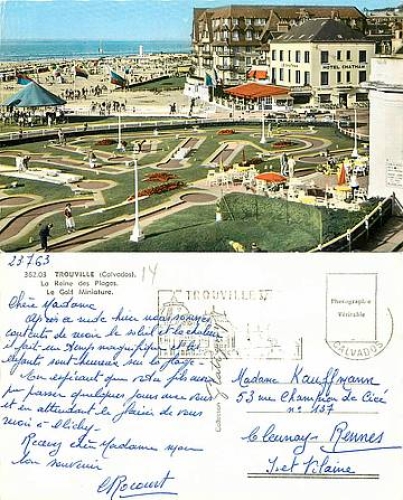 HOTEL CHATHAM
23763
14
352.03 TROUVILLE (Calvados).
La Reine des Plages.
Le Golf Miniature.
TROUVILLE
Photographie
Véritable
CALVADOS
Chère Madame
Après ce rude hiver nous sommes
contents de voir le soleil et la chaleur
il fait un temps magnifique et les
enfants sont heureux sur la plage.
En espérant que vous
passer quelques jours avec vous
et en attendant le plaisir de vous
voir à Clichy.
Recevez chère Madame mon
bon souvenir
Madame Kauffmann
53 rue Champion de Cicé
n° 137
Cleunay - Rennes
Ile et Vilaine